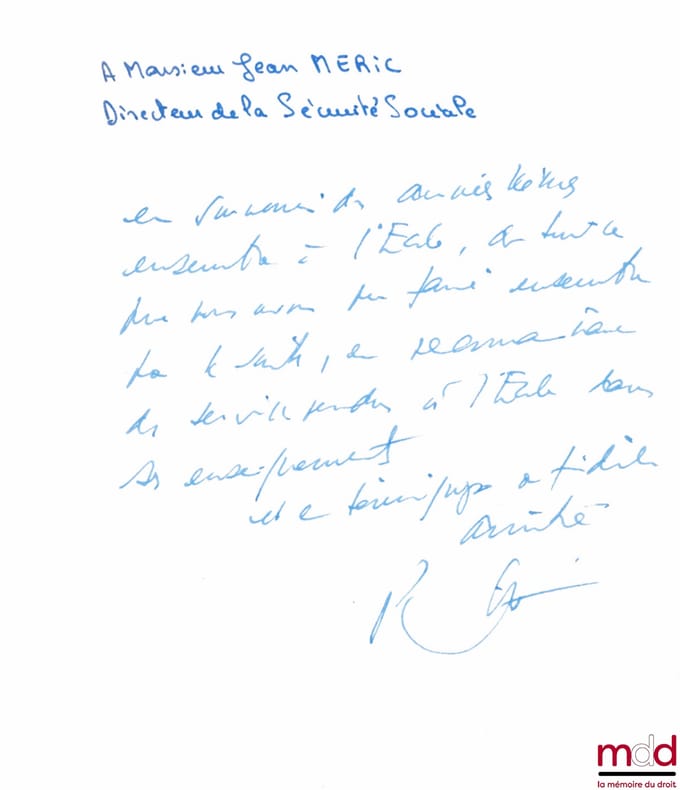 A Monsieur Jean MERIC
Directeur de la Sécurité Sociale
en souvenir des années
ensemble à l'Ecole, de tout ce
que nous avons pu faire ensemble
par la suite, en reconnaissance
des services rendus à l'Ecole dans
ses enseignements
et en témoignage de fidèle
amitié
mdd
la mémoire du droit